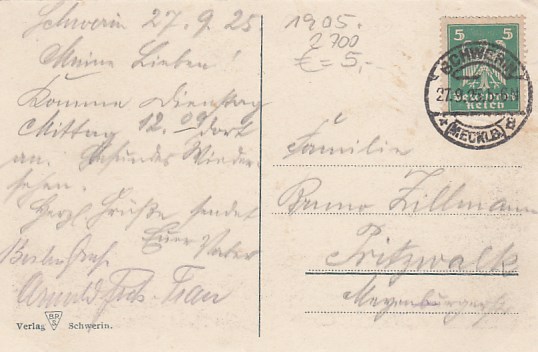 Schwerin 27.9.25
Meine Lieben!
Komme Dienstag
Mittag 12.09 dort
an. Gesundes Wieder-
sehen.
Herzl. Grüße sendet
Euer Vater
Besten Gruß
Arnold Frau
Verlag Schwerin.
1905.
2700
€ = 5,-
5 5
Deutsches
Reich
SCHWERIN
27.9.25
(MECKLB.)
Familie
Bruno Zillmann
Pritzwalk
Meyenburgerstr